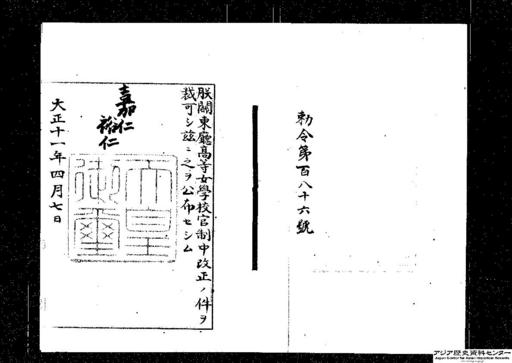 勅令第百八十六號
朕關東廳高等女學校官制中改正ノ件ヲ
裁可シ茲ニ之ヲ公布セシム
嘉仁
裕仁
天皇御璽
大正十一年四月七日
アジア歴史資料センター
Japan Center for Asian Historical Records